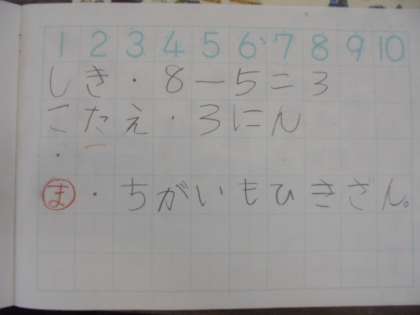 1 2 3 4 5 6 7 8 9 10
しき・8－5＝3
こたえ・3にん
・
ま・ちがいもひきざん。